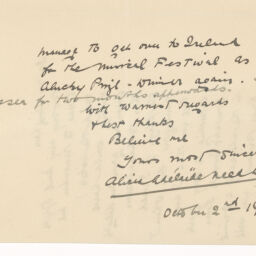 manage to get over to Ireland
for the Musical Festival as
a lucky Prize-winner again.
for two months afterwards.
with warmest regards
& best thanks
Believe me
Yours most Since
Alicia Adélaïde Needh
October 2nd 19